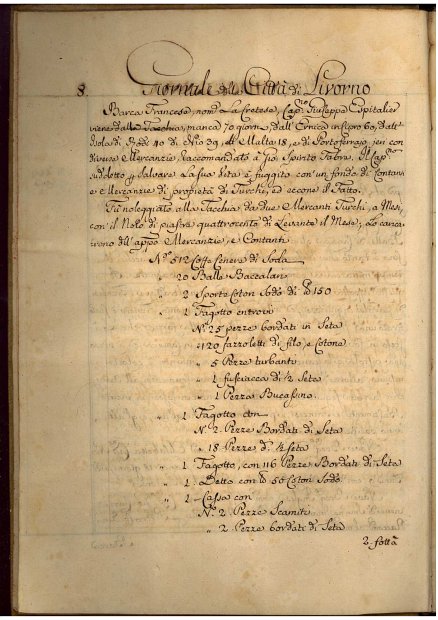 8.
Giornale della Città di Livorno
Barca Francese, nom.ta La Cretese, Cap.no Giuseppe Espitalier
viene dalla Tacchia, manca 70 giorni, dall'
Isola di Rodi 40 di Nio 29, di Malta 18, e di Portoferraio jeri con
diverse Mercanzie, Raccomandato à Gio. Spirito Fabre. Il Cap.no
suddetto p. salvare la sua Vita è fuggito con un fondo di Contanti
e Mercanzie di proprietà di Turchi, ed eccone il Fatto.
Fù noleggiato alla Tacchia da due Mercanti Turchi, a Mesi,
con il Nolo di piastre quattrocento di Levante il Mese; Lo carica-
rono dell'app.o Mercanzie, e Contanti
N.o 512 Coffe Cenere di Soda
" 20 Balle Baccalari
" 2 Sporte Coton Sodo di lb 150
" 1 Fagotto entrovi
N.o 25 pezze bordati in Seta
" 120 fazzoletti di filo, e Cotone
" 5 Pezze turbanti
" 1 fusciacca di 1/2 Seta
" 1 Pezza Bucassino.
" 1 Fagotto con
N.o 2. Pezze Bordati di Seta
" 18 Pezze d.i 1/2 Seta
" 1 Fagotto, con 116 Pezze Bordati di Seta
" 1 Detto con lb 56 Coton Sodo.
" 1 Cassa con
N.o 2. Pezze Scamiti
" 2. Pezze bordati di Seta
2. fotta